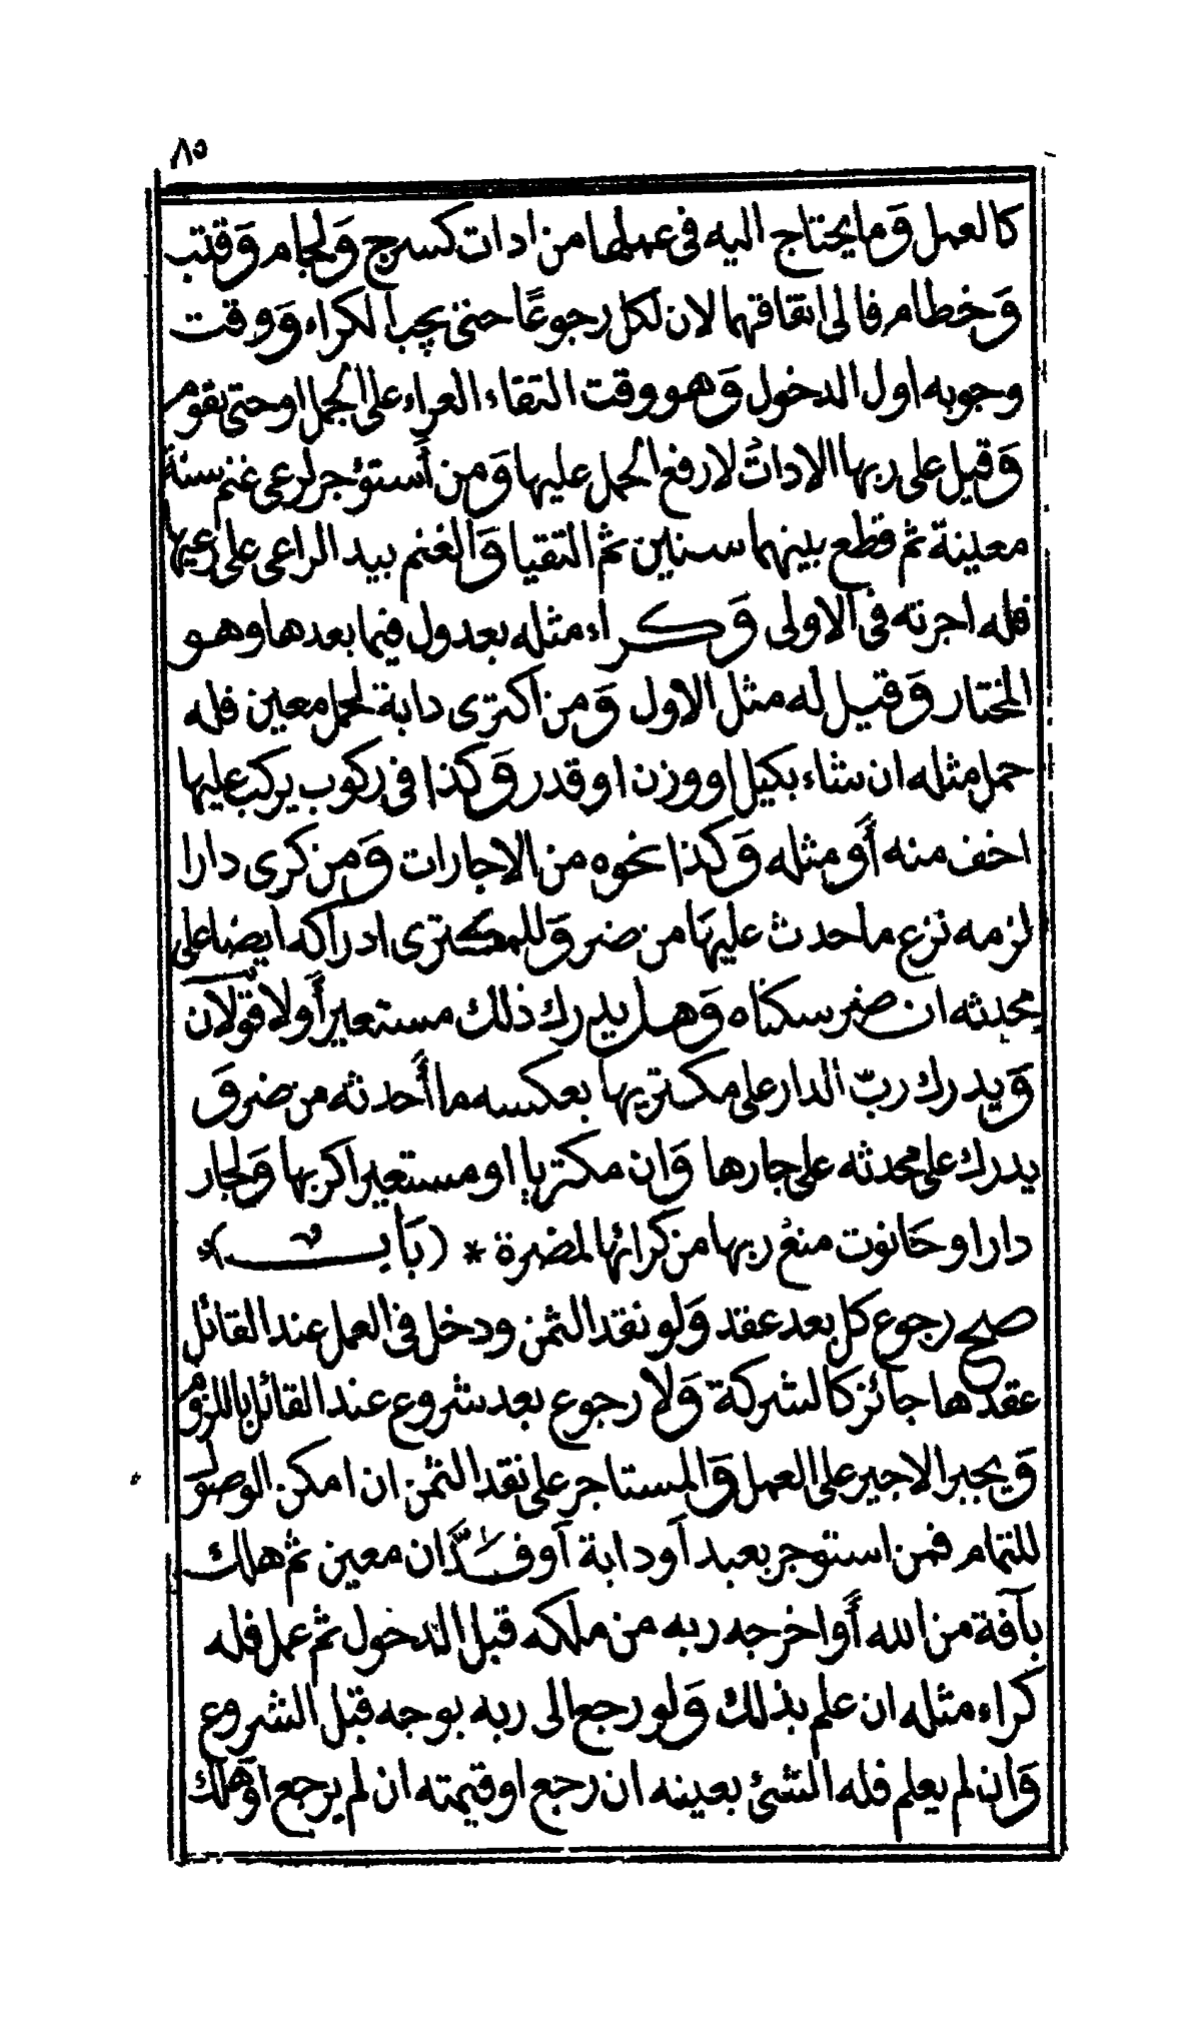 ٨٥
كالعمل وَما يحتاج اليه في عملها من ادات كسرج وَلجام وَقتب
وَخطام فالى اتفاقهما لان لكل رجوعًا حتى يجب الكراء وَوقت
وجوبه اول الدخول وَهو وقت التقاء العراء على الجمل او حتى يقوم
وَقيل على ربها الاداتُ لا رفع الحمل عليها وَمن أَستؤجر لرعي غنم سنة
معينة ثم قطع بينهما سنين ثم التقيا وَالغنم بيد الراعي على رعيها
فله اجرته في الاولى وَكراء مثله بعدول فيما بعدها وهو
المختار وَقيل له مثل الاول وَمن اكترى دابة لحمل معين فله
حمل مثله ان شاء بكيل او وزن او قدر وَكذا في ركوب يركب عليها
اخف منه أَو مثله وَكذا نحوه من الاجارات وَمن كرى دارا
لزمه نزع ما حدث عليها من ضر وَللمكترى ادراكه ايضا على
محدثه ان ضر سكناه وَهل يدرك ذلك مستعير أَولا قولان
وَيدرك ربّ الدار على مكتريها بعكسه ما أَحدثه من ضر وَ
يدرك على محدثه على جارها وَان مكتريا او مستعيرا كربها وَلجار
دارا وحَانوت منعُ ربها من كرائها لمضرة * (بَاب)
صح رجوع كل بعد عقد وَلو نقد الثمن ودخل في العمل عند القائل
عقدها جائز كالشركة وَلا رجوع بعد شروع عند القائل باللزوم
وَيجبر الاجير على العمل وَالمستاجر على نقد الثمن ان امكن الوصول
للتمام فمن استوجر بعبد أودابة أوفَدَّان معين ثم هلك
بآفة من الله أَواخرجه ربه من ملكه قبل الدخول ثم عمل فله
كراء مثله ان علم بذلك وَلو رجع الى ربه بوجه قبل الشروع
وَان لم يعلم فله الشئ بعينه ان رجع اوقيمته ان لم يرجع اوهلك